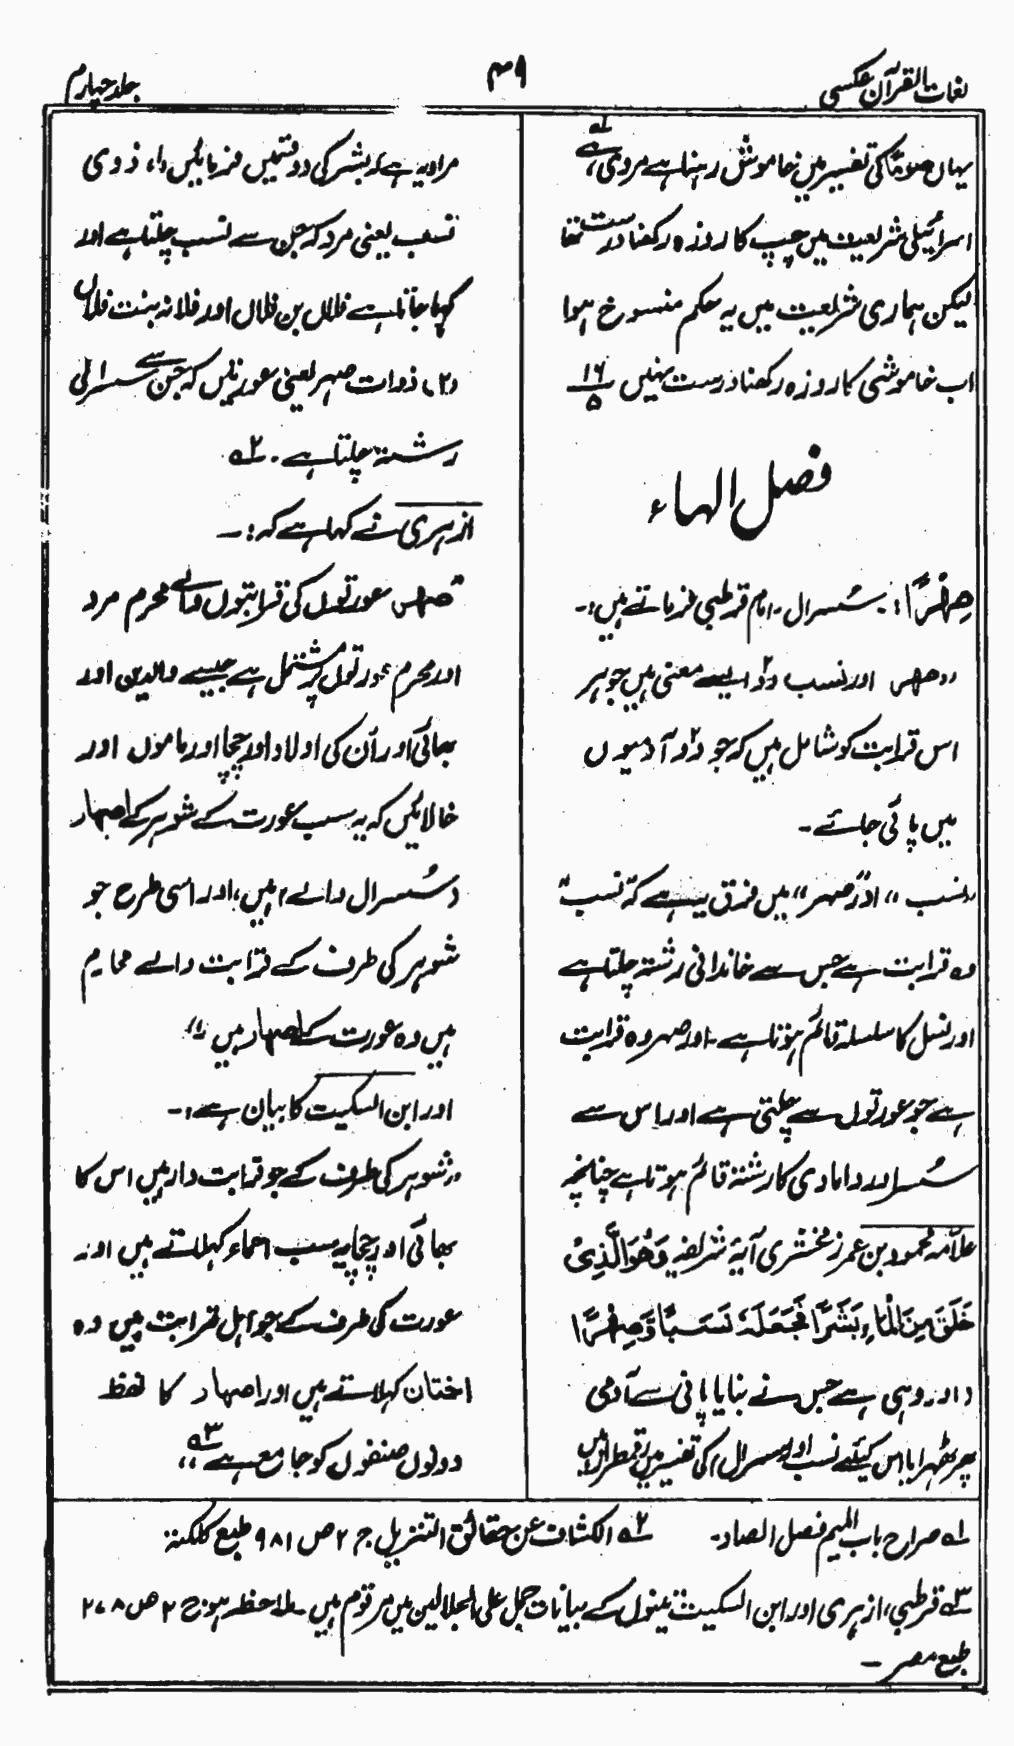 لغات القرآن عکسی
۴۹
جلد چہارم
یہاں صوتا کی تفسیر میں خاموش رہنا ہے مروی ہے لہ
اسرائیلی شریعت میں چپ کا روزہ رکھنا درست تھا
لیکن ہماری شریعت میں یہ حکم منسوخ ہوا
اب خاموشی کا روزہ رکھنا درست نہیں ۱۶/۵
فصل الہاء
صِهْرًا: سُسرال۔ امام قرطبی فرماتے ہیں:۔
"صہر اور نسب دو ایسے معنی ہیں جو ہر
اس قرابت کو شامل ہیں کہ جو دو آدمیوں
میں پائی جائے۔
"نسب" اور "صہر" میں فرق یہ ہے کہ "نسب"
وہ قرابت ہے جس سے خاندانی رشتہ چلتا ہے
اور نسل کا سلسلہ قائم ہوتا ہے۔ اور صہر وہ قرابت
ہے جو عورتوں سے چلتی ہے اور اس سے
سُسر اور دامادی کا رشتہ قائم ہوتا ہے چنانچہ
علامہ محمود بن عمر زمخشری آیۂ شریفہ وَهُوَ الَّذِیْ
خَلَقَ مِنَ الْمَاءِ بَشَرًا فَجَعَلَهٗ نَسَبًا وَّصِهْرًا
(اور وہی ہے جس نے بنایا پانی سے آدمی
پھر ٹھہرایا اس کیلئے نسب اور سسرال) کی تفسیر میں رقمطراز ہیں
مراد یہ ہے کہ بشر کی دو قسمیں فرمائیں (۱) ذوی
نسب یعنی مرد کہ جن سے نسب چلتا ہے اور
کہا جاتا ہے فلاں بن فلاں اور فلانہ بنت فلاں
(۲) ذوات صہر یعنی عورتیں کہ جن سے سسرالی
رشتہ چلتا ہے۔ ۲ہ
ازہری نے کہا ہے کہ:۔
"صہر عورتوں کی قرابتوں والے محرم مرد
اور محرم عورتوں پر مشتمل ہے جیسے والدین اور
بھائی اور اُن کی اولاد اور چچا اور ماموں اور
خالائیں کہ یہ سب عورت کے شوہر کے اصہار
(سُسرال والے) ہیں، اور اسی طرح جو
شوہر کی طرف کے قرابت والے محارم
ہیں وہ عورت کے اصہار ہیں"
اور ابن السکیت کا بیان ہے:۔
"شوہر کی طرف کے جو قرابت دار ہیں اس کا
بھائی اور چچا یہ سب احماء کہلاتے ہیں اور
عورت کی طرف کے جو اہل قرابت ہیں وہ
اختان کہلاتے ہیں اور اصہار کا لفظ
دونوں صنفوں کو جامع ہے" ۳ہ
۱ہ صراح باب المیم فصل الصاد۔ ۲ہ الکشاف عن حقائق التنزیل ج ۲ ص ۹۸۱ طبع کلکتہ
۳ہ قرطبی، ازہری اور ابن السکیت تینوں کے بیانات جمل علی الجلالین میں مرقوم ہیں۔ ملاحظہ ہو ج ۲ ص ۲۷۸
طبع مصر۔